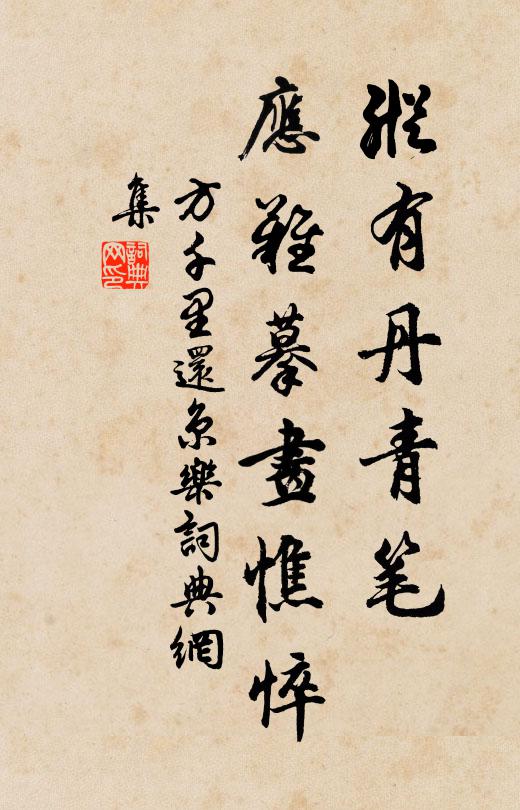 縱有丹青笔
應難摹畫憔悴
方千里還京樂詞典網
集
詞典網印